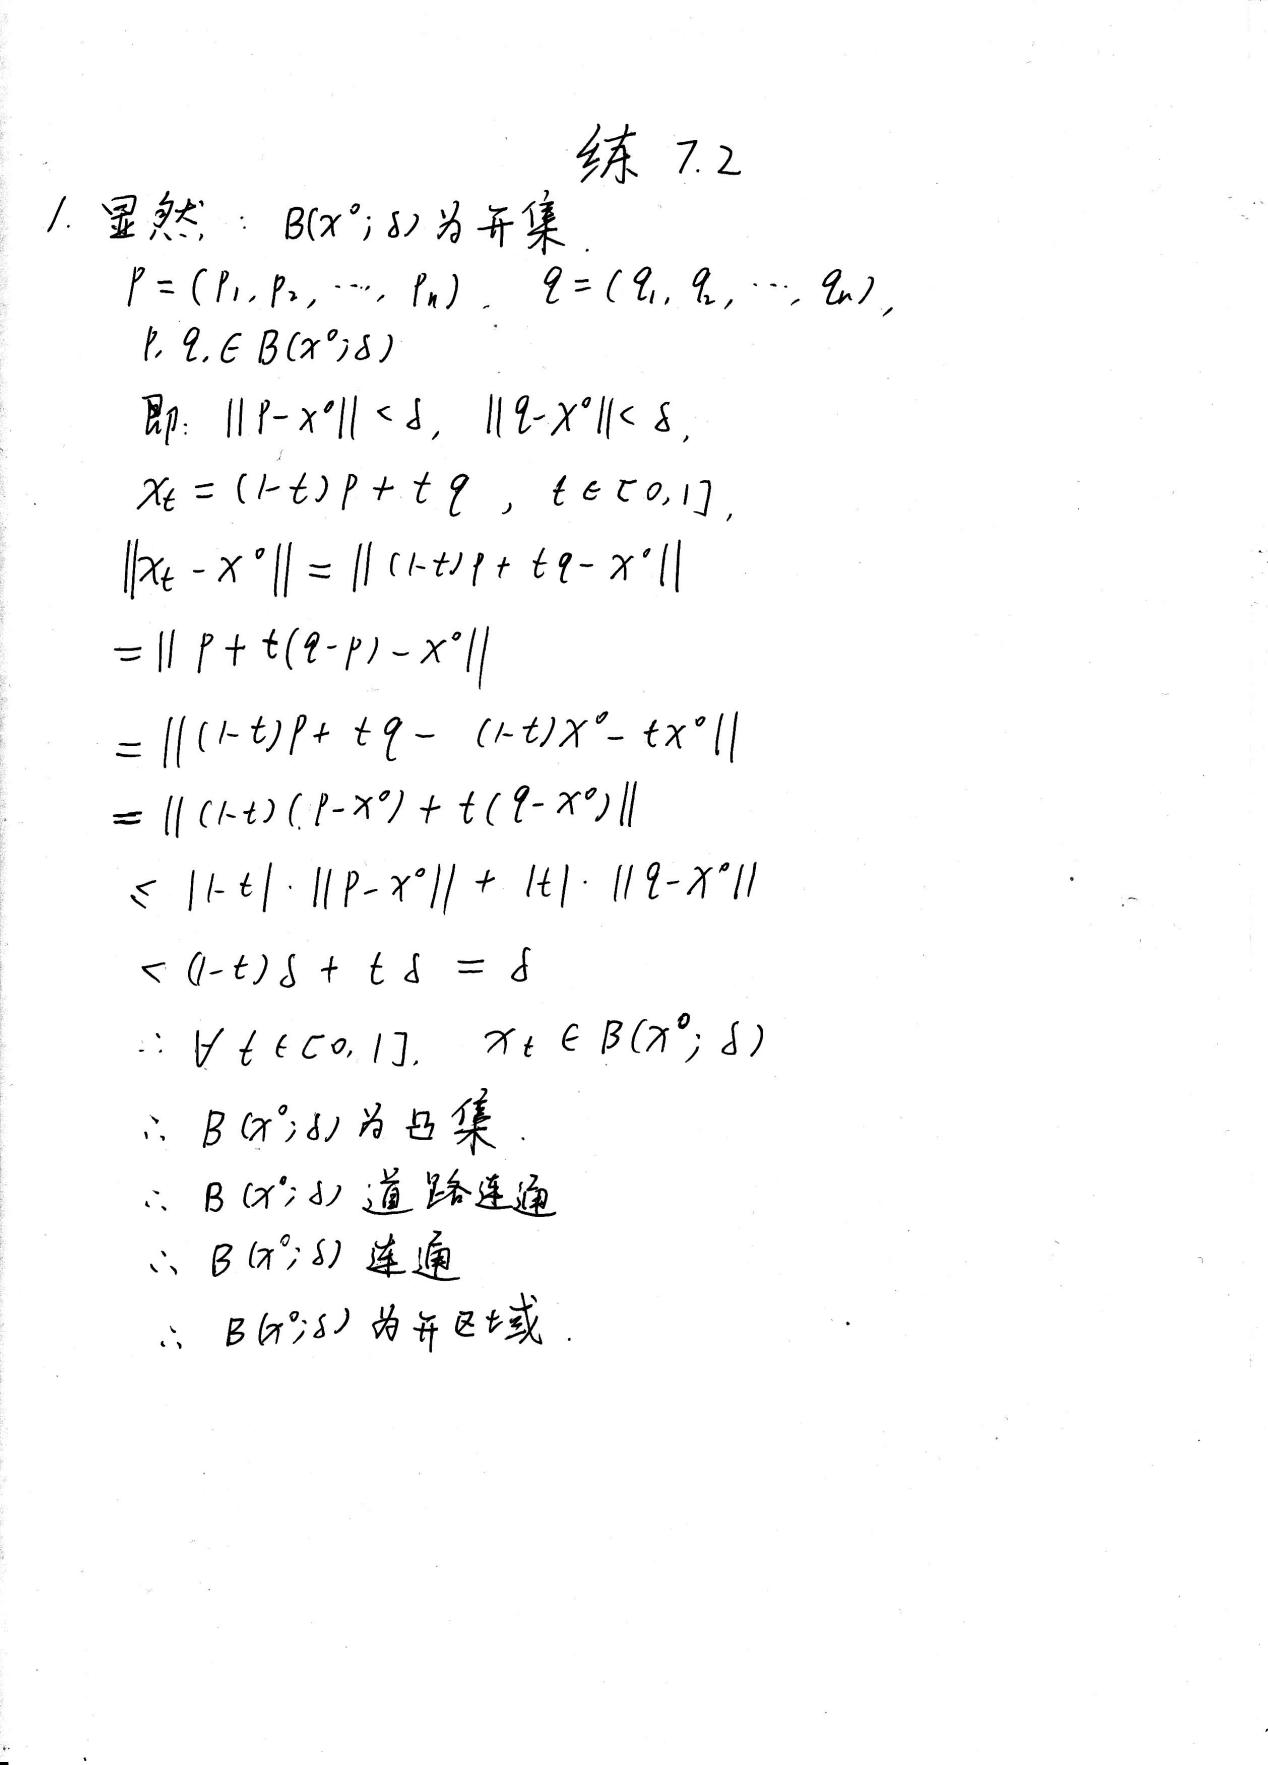 练 7.2
1. 显然: B(x⁰; δ) 为开集.
p = (p₁, p₂, ⋯, pₙ). q = (q₁, q₂, ⋯, qₙ),
p, q, ∈ B(x⁰; δ)
即: ||p-x⁰|| < δ, ||q-x⁰|| < δ,
xₜ = (1-t)p + tq , t ∈ [0,1],
||xₜ - x⁰|| = ||(1-t)p + tq - x⁰||
= ||p + t(q-p) - x⁰||
= ||(1-t)p + tq - (1-t)x⁰ - tx⁰||
= ||(1-t)(p-x⁰) + t(q-x⁰)||
≤ |1-t|·||p-x⁰|| + |t|·||q-x⁰||
< (1-t)δ + tδ = δ
∴ ∀ t ∈ [0,1], xₜ ∈ B(x⁰; δ)
∴ B(x⁰; δ) 为凸集.
∴ B(x⁰; δ) 道路连通
∴ B(x⁰; δ) 连通
∴ B(x⁰; δ) 为开区域.